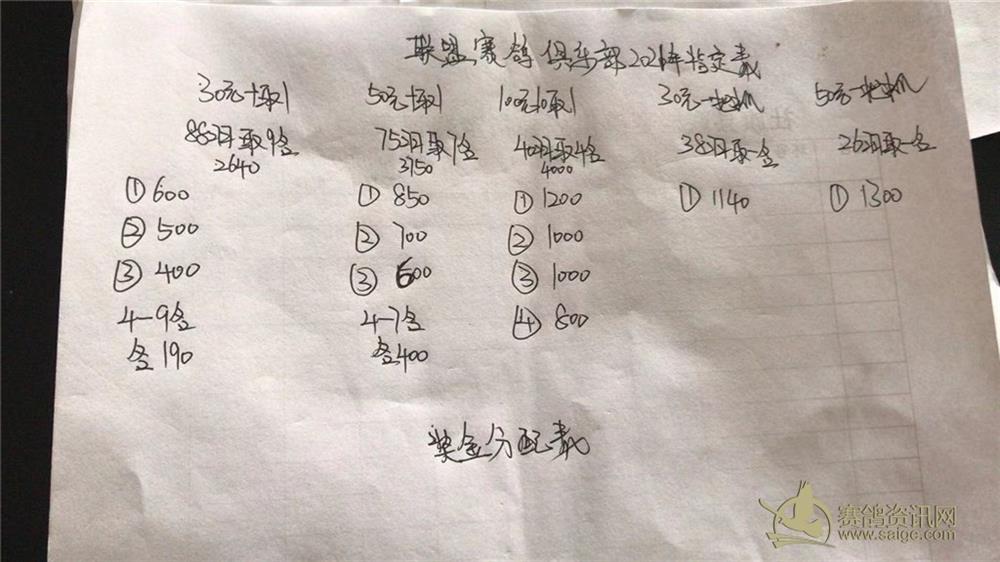 联盟赛鸽俱乐部2021年特定表
30元十取1 50元十取1 100元10取1 30元一把抓 50元一把抓
88羽取9名 75羽取7名 40羽取4名 38羽取一名 26羽取一名
2640 3750 4000
①600 ①850 ①1200 ①1140 ①1300
②500 ②700 ②1000
③400 ③600 ③1000
4-9名 4-7名 ④800
各190 各400
奖金分配表
赛鸽资讯网
www.saige.com